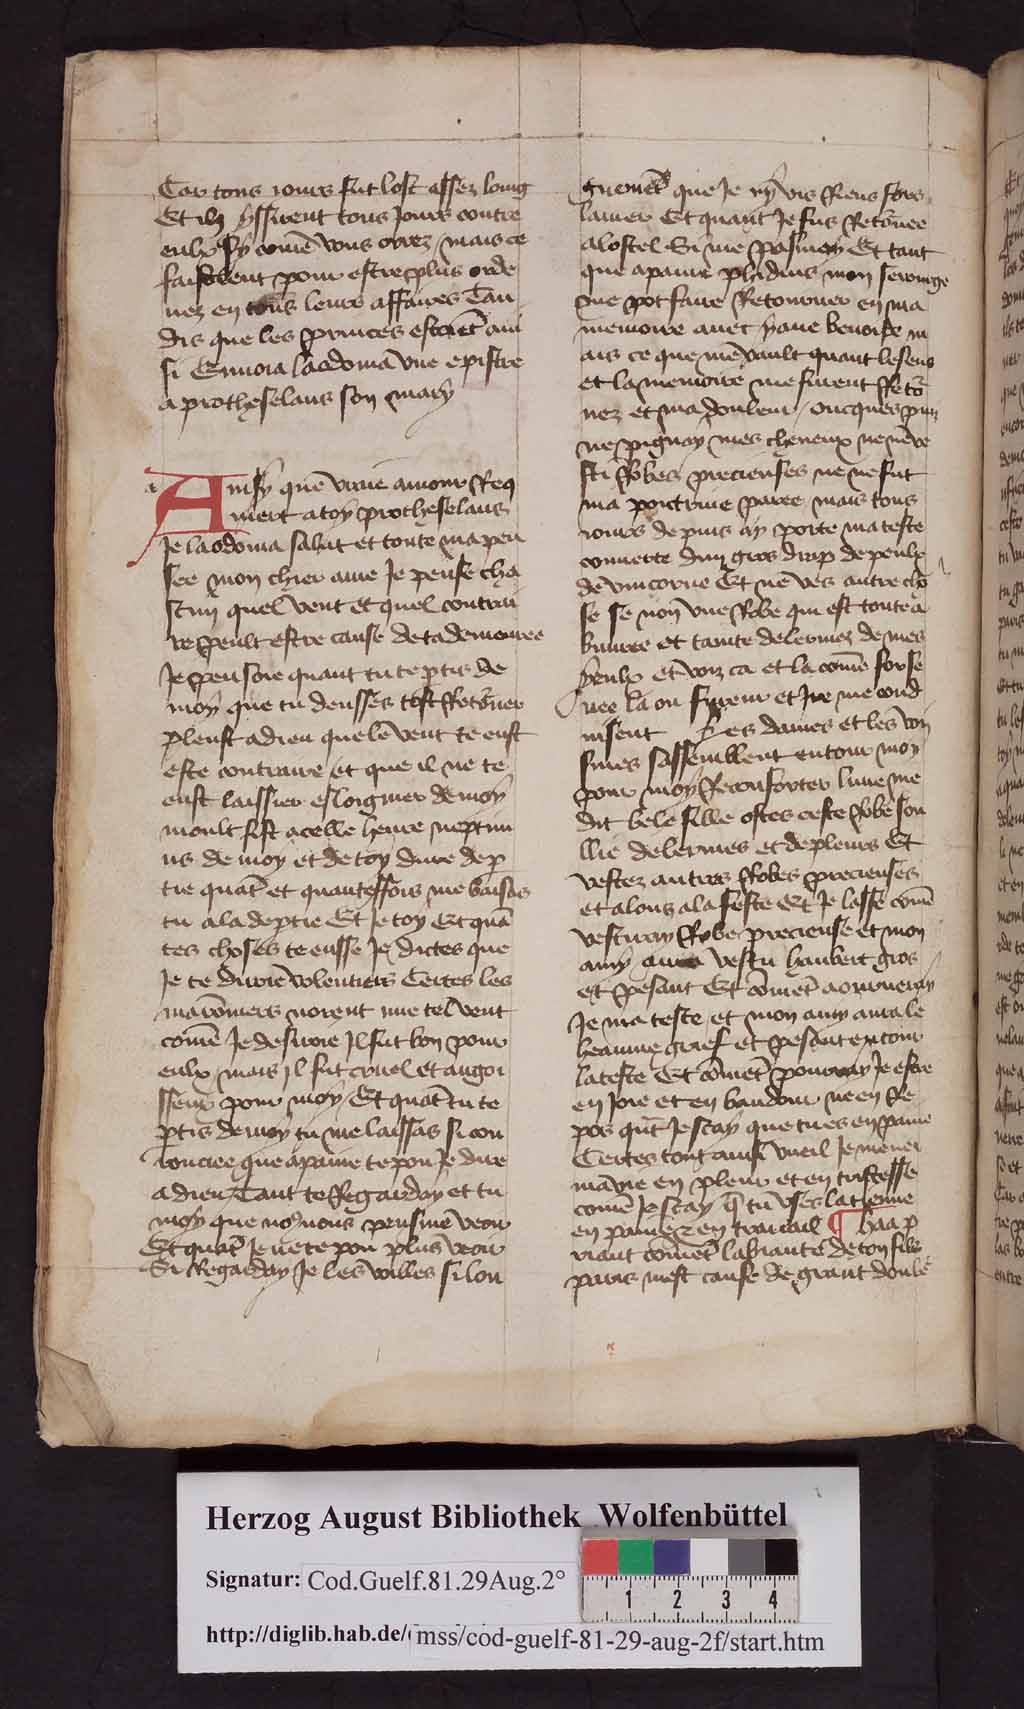 Car tous jours fut lost assez loing
Et ilz yssirent tous jours contre
eulx sy comē vous orrez / mais ce
faisoient pour estre plus orde
nez en tous leurs affaires Tan
dis que les princes estoiēt ain
si Envoia laodomia vne epistre
a protheselaus son mary
a
Ainsy que vraie amour Req
uiert a toy protheselaus
Je laodomia salut et toute ma pen
see mon chier ame Je pense cha
scun quel vent et quel contrai
re peult estre cause de ta demouree
Je pensoie quant tu te ptis de
moy que tu deusses tost Retōner
pleust a dieu que le vent te eust
este contraire et que il ne te
eust laissier esloigner de moy
moult fist a celle heure neptun
us de moy et de toy dure dep
tie quāt et quanteffois me baisas
tu a la deptie Et Je toy Et quā
tes choses te eusse Je dictes que
Je te diroie volentiers Certes les
maronniers vorent me tel vent
comē Je desiroie Il fut bon pour
eulx mais il fut cruel et angoi
sseux pour moy / Et quāt tu te
ptis de moy tu me laissas si cou
roucee que a paine te pou Je dire
adieu Tant te Regarday et tu
moy que no9 nous peusme veoir
Et quāt Je ne te pou plus veoir
Si Regarday Je les voilles si lon
guemēt que Je ny vis Riens fors
la mer Et quant Je fus Retōnee
a lostel Si me pasmay Et tant
que a paine phidius mon serourge
me pot faire Retourner en ma
memoire avec yaue benoiste m
ais ce que me vault quant le sens
et la memoire me furent Retō
nez et ma douleur / oncques puis
ne pignay mes cheveux ne ne ve
sti Robes precieuses ne ne fut
ma poictrine paree mais tous
jours depuis ay porte ma teste
couverte dun gros drap de peulx
de vnicorne Et ne ves autre cho
se se non vne Robe qui est toute a
buuree et tainte de lermez de mes
yeulx et voiz ca et la comē forse
nee la ou fureur et Ire me cond
uisent Les dames et les voi
sines sassemblent entour moy
pour moy Reconforter lune me
dit bele fille ostes ceste Robe sou
llie de lermes et de pleurs Et
vestez autres Robes precieuses
et alons a la feste Et Je lasse comē
vestiray Robe precieuse et mon
amy aura vestu haubert gros
et pesant Et comēt aourneray
Je ma teste et mon amy aura le
heaume grief et pesant entour
la teste Et comēt pourray Je estre
en Joie et en baudour ne en Re
pos qūt Je scay que tu es en paine
Certes tout ainsi vueil Je mener
ma vie en pleur et en tristesse
comē Je scay q̄ tu vses la tienne
en paine et en travail ¶ haa p
riant comēt la biaute de ton filz
paris mest cause de grant doulē
Herzog August Bibliothek Wolfenbüttel
Signatur: Cod.Guelf.81.29Aug.2°
1 2 3 4
http://diglib.hab.de/ mss/cod-guelf-81-29-aug-2f/start.htm